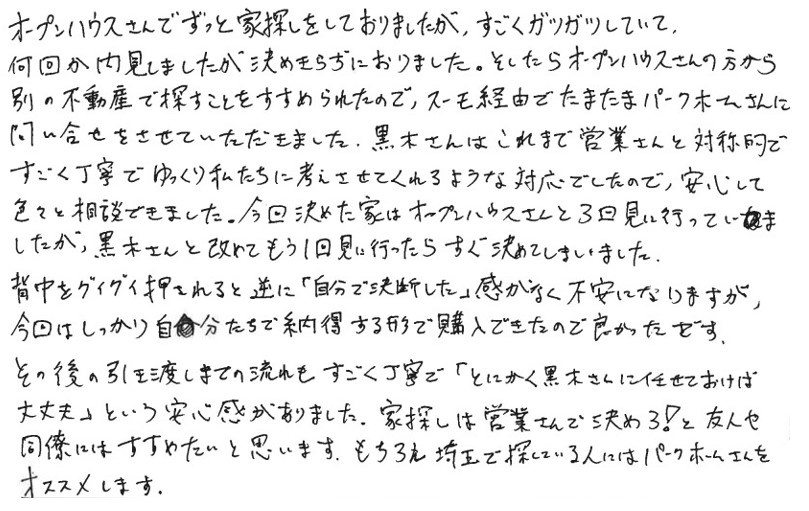 オープンハウスさんでずっと家探しをしておりましたが、すごくガツガツしていて、
何回か内見しましたが決めきらずにおりました。そしたらオープンハウスさんの方から
別の不動産で探すことをすすめられたので、スーモ経由でたまたまパークホームさんに
問い合せをさせていただきました。黒木さんはこれまで営業さんと対称的で
すごく丁寧でゆっくり私たちに考えさせてくれるような対応でしたので、安心して
色々と相談できました。今回決めた家はオープンハウスさんと3回見に行っていま
したが、黒木さんと改めてもう1回見に行ったらすぐ決めてしまいました。
背中をグイグイ押されると逆に「自分で決断した」感がなく不安になりますが、
今回はしっかり自分たちで納得する形で購入できたので良かったです。
その後の引き渡しまでの流れもすごく丁寧で「とにかく黒木さんに任せておけば
大丈夫」という安心感がありました。家探しは営業さんで決める!と友人や
同僚にはすすめたいと思います。もちろん埼玉で探している人にはパークホームさんを
オススメします。